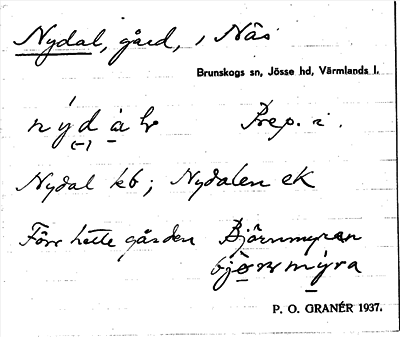 Nydal, gård, i Näs
Brunskogs sn, Jösse hd, Värmlands l.
nýdàl Prep. i.
(-)
Nydal kb; Nydalen ek
Förr hette gården Björnmyran
P. O. GRANÉR 1937.